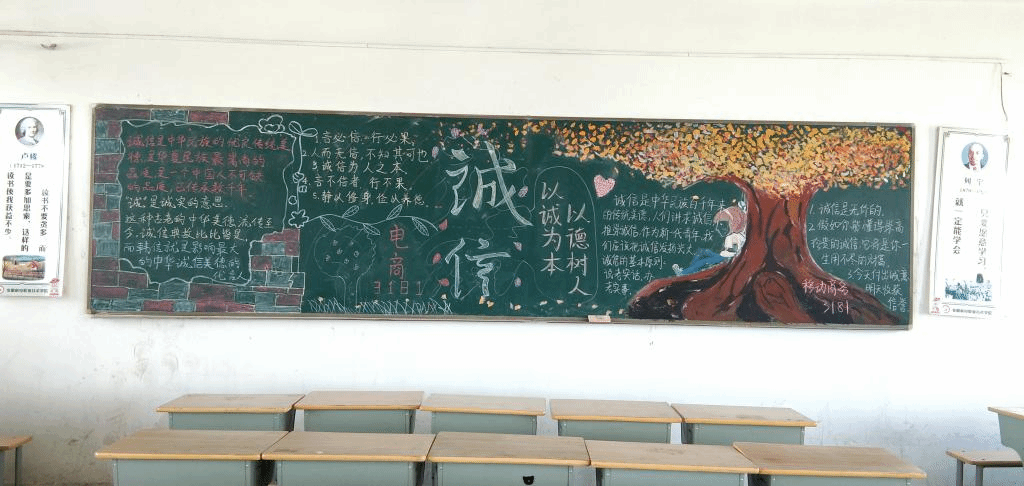 卢梭
(1712-1778)
读书不要贪多
而
是要多加思索，这样的
读书使我获益不少
诚信是中华民族的优良传统美
德，是华夏民族最崇高的
品质，是一个中国人不可缺
的品质，已传承数千年
"诚"是诚实的意思.
这种古老的中华美德流传至
今，诚信典故比比皆是
而韩信就是影响最大
的中华诚信美德的
代言人
1.言必信，行必果，
2.人而无信，不知其可也
3.诚信为人之本
4.言不信者 行不果
5.静以修身，俭以养德.
电商
3181
誠信
以诚为本
以德树人
诚信是中华民族的千年来
的传统美德，人们讲求诚信
推崇诚信.作为新一代青年.我
们应该把诚信发扬光大
诚信的基本原则：
说老实话.办
老实事
1.诚信是无价的.
2.假如你需懂得崇高
3.今天付出诚意
明天收获
信誉
移动商务
3181
列宁
只要愿意学习，
就一定能学会